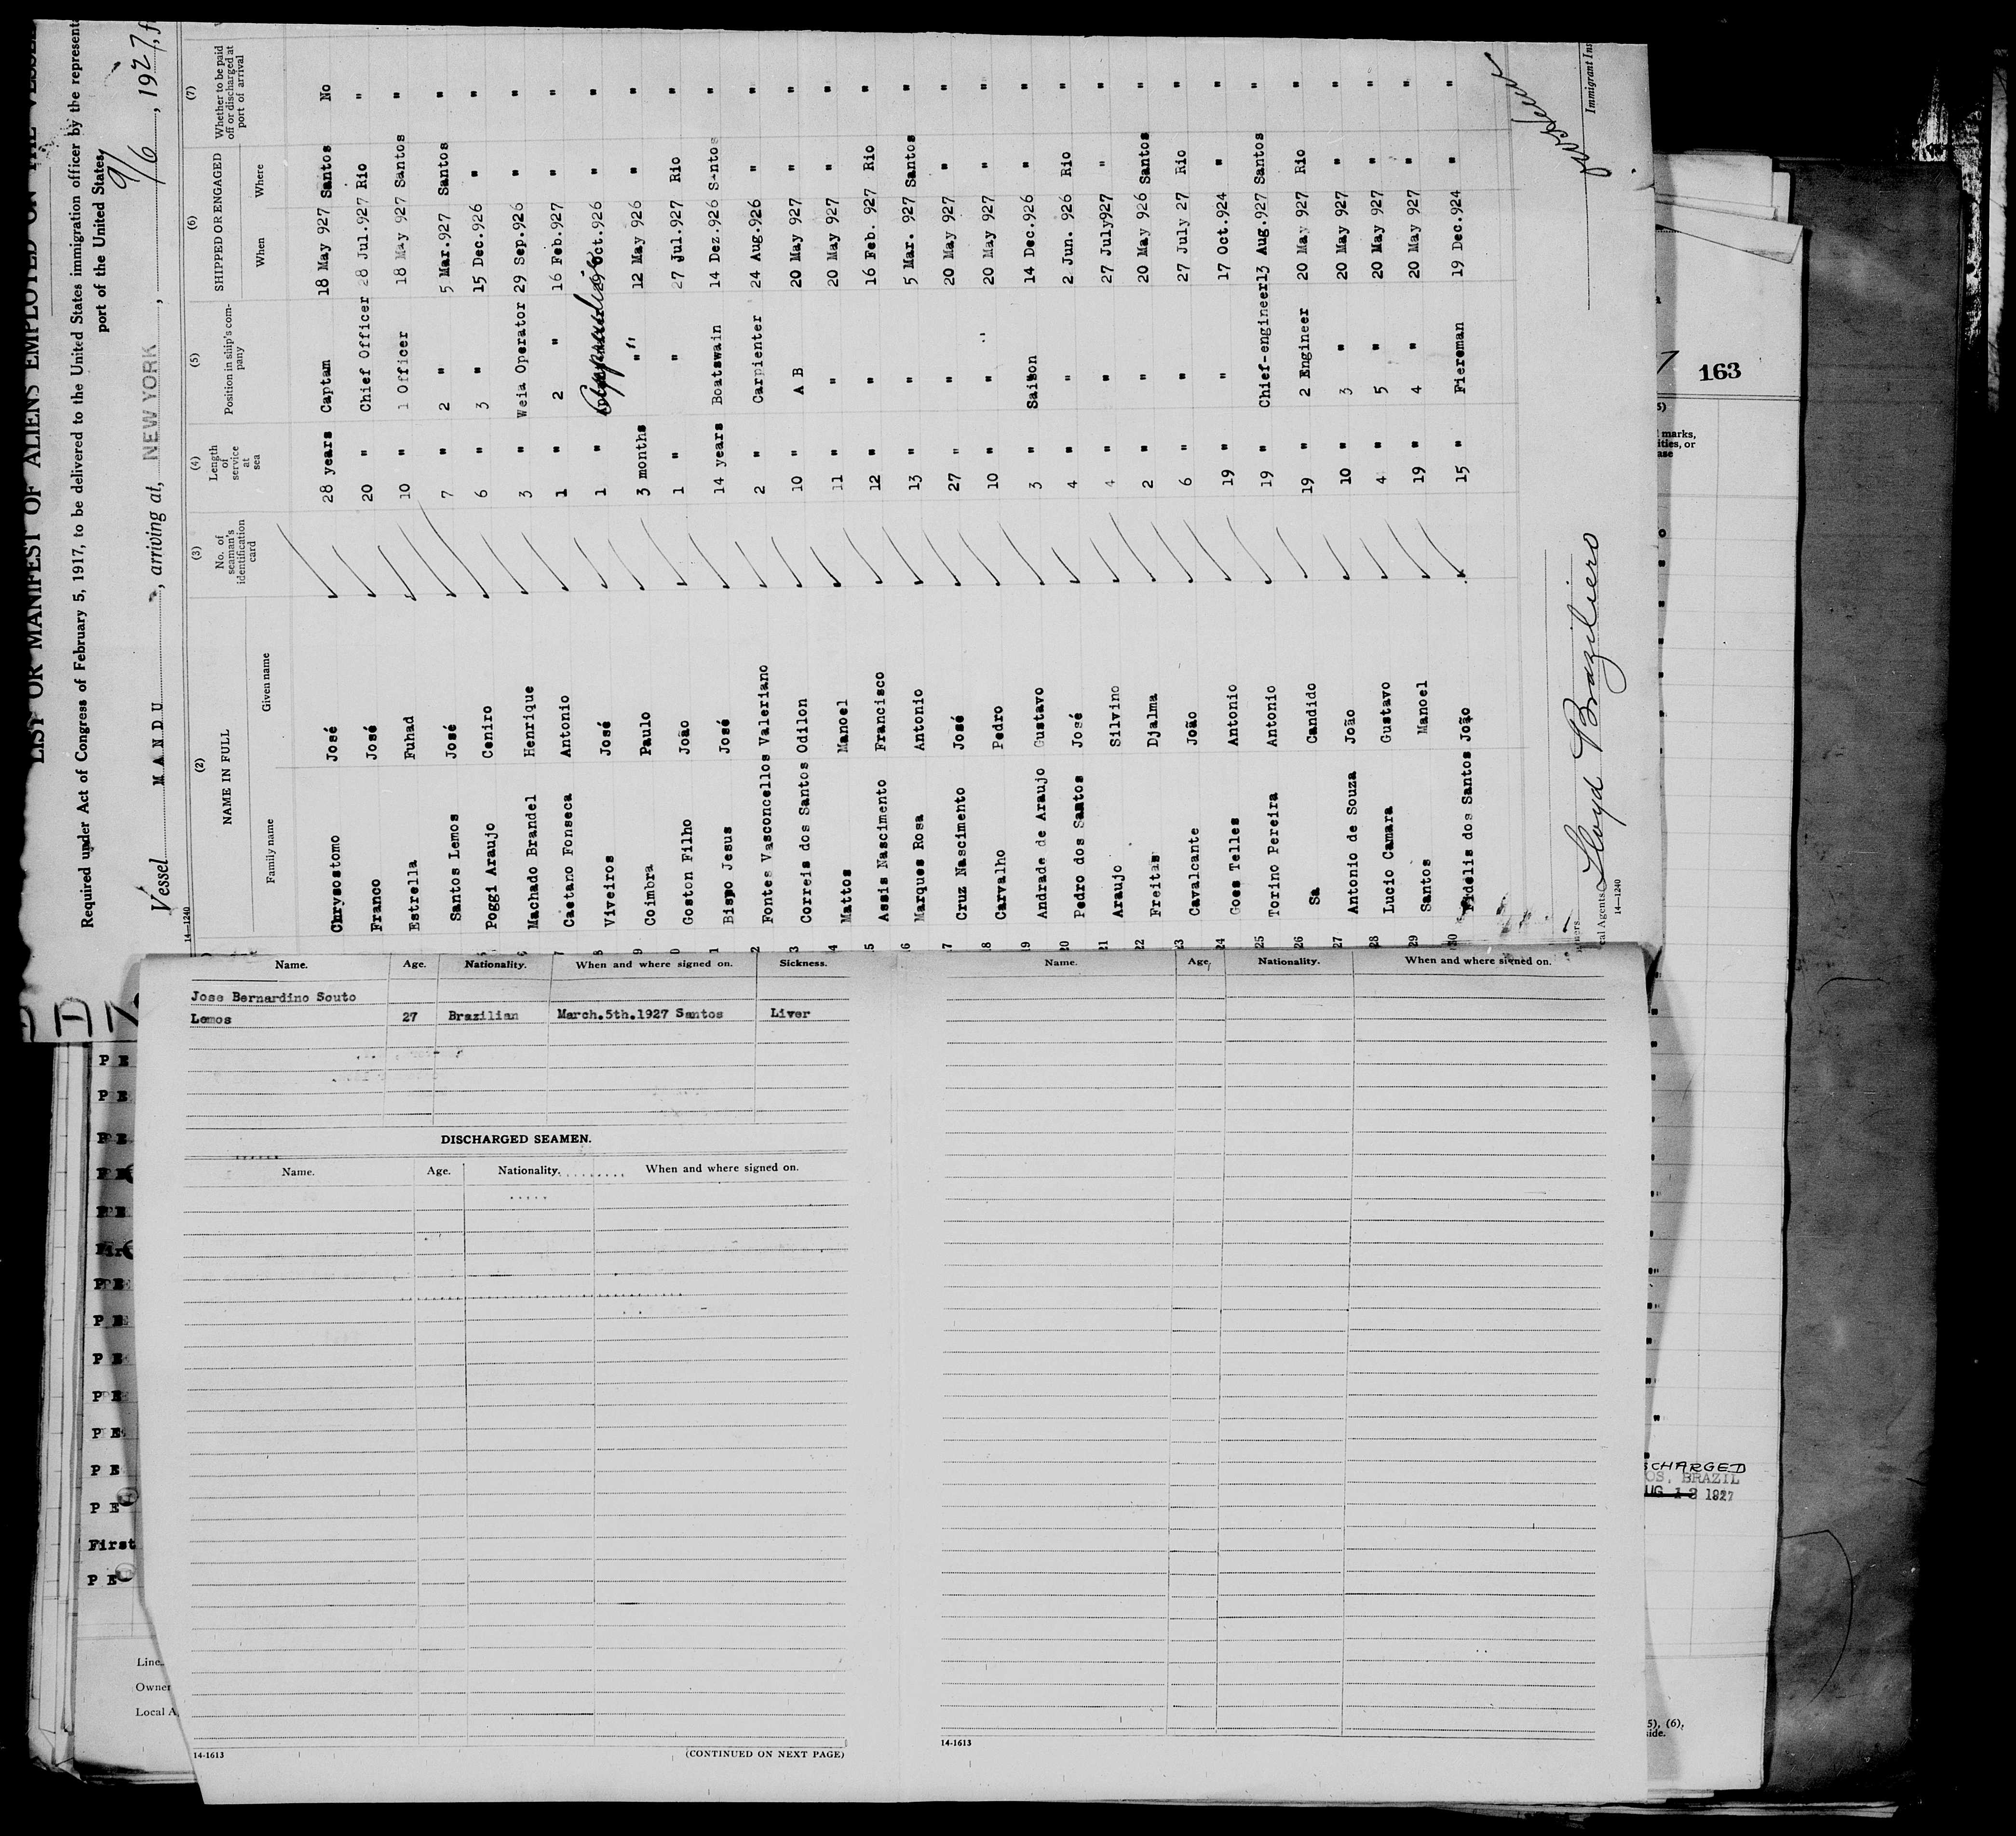 LIST OR MANIFEST OF ALIENS EMPLOYED ON THE VESSEL
Required under Act of Congress of February 5, 1917, to be delivered to the United States immigration officer by the represent
port of the United States
Vessel MANDU, arriving at, NEW YORK, 9/6, 1927, f
14—1240
(2) (3) (4) (5) (6) (7)
NAME IN FULL No. of seaman's identification card Length of service at sea Position in ship's company SHIPPED OR ENGAGED Whether to be paid off or discharged at port of arrival
Family name Given name When Where
Chrysostomo José 28 years Captam 18 May 927 Santos No
Franco José 20 " Chief Officer 28 Jul.927 Rio "
Estrella Fuhad 10 " 1 Officer 18 May 927 Santos "
Santos Lemos José 7 " 2 " 5 Mar.927 Santos "
5 Poggi Araujo Ceniro 6 " 3 " 15 Dec.926 " "
6 Machado Brandel Henrique 3 " Weia Operator 29 Sep.926 " "
7 Caetano Fonseca Antonio 1 " 2 " 16 Feb.927 " "
8 Viveiros José 1 " Oct.926 " "
9 Coimbra Paulo 3 months " " 12 May 926 " "
0 Goston Filho João 1 " " 27 Jul.927 Rio "
1 Bispo Jesus José 14 years Boatswain 14 Dez.926 Santos "
2 Fontes Vasconcellos Valeriano 2 " Carpienter 24 Aug.926 " "
3 Correis dos Santos Odilon 10 " A B 20 May 927 " "
4 Mattos Manoel 11 " " 20 May 927 " "
15 Assis Nascimento Francisco 12 " " 16 Feb. 927 Rio "
16 Marques Rosa Antonio 13 " " 5 Mar. 927 Santos "
17 Cruz Nascimento José 27 " " 20 May 927 " "
18 Carvalho Pedro 10 " " 20 May 927 " "
19 Andrade de Araujo Gustavo 3 " Saison 14 Dec.926 " "
20 Pedro dos Santos José 4 " " 2 Jun. 926 Rio "
21 Araujo Silvino 4 " " 27 July927 " "
22 Freitas Djalma 2 " " 20 May 926 Santos "
23 Cavalcante João 6 " " 27 July 27 Rio "
24 Goes Telles Antonio 19 " " 17 Oct.924 " "
25 Torino Pereira Antonio 19 " Chief-engineer 13 Aug.927 Santos "
26 Sa Candido 19 " 2 Engineer 20 May 927 Rio "
27 Antonio de Souza João 10 " 3 " 20 May 927 " "
28 Lucio Camara Gustavo 4 " 5 " 20 May 927 " "
29 Santos Manoel 19 " 4 " 20 May 927 " "
30 Fidelis dos Santos João 15 " Fiereman 19 Dec.924 " "
Lloyd Braziliero
Immigrant Ins
14—1240
163
marks,
Name. Age. Nationality. When and where signed on. Sickness.
Jose Bernardino Souto
Lemos 27 Brazilian March.5th.1927 Santos Liver
DISCHARGED SEAMEN.
Name. Age. Nationality. When and where signed on.
14-1613 (CONTINUED ON NEXT PAGE)
Name. Age, Nationality. When and where signed on.
14-1613
P E
P E
P E
P E
P E
Fir
P E
P E
P E
P E
P E
P E
P E
First
P E
Line
Owner
Local A
SCHARGED
OS, BRAZIL
UG 1927
5), (6),
side.